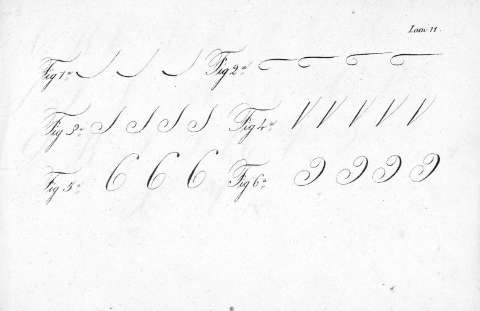 Lam 11.
Fig 1ª Fig 2ª
Fig 3ª Fig 4ª
Fig 5ª 6 6 6 Fig 6ª